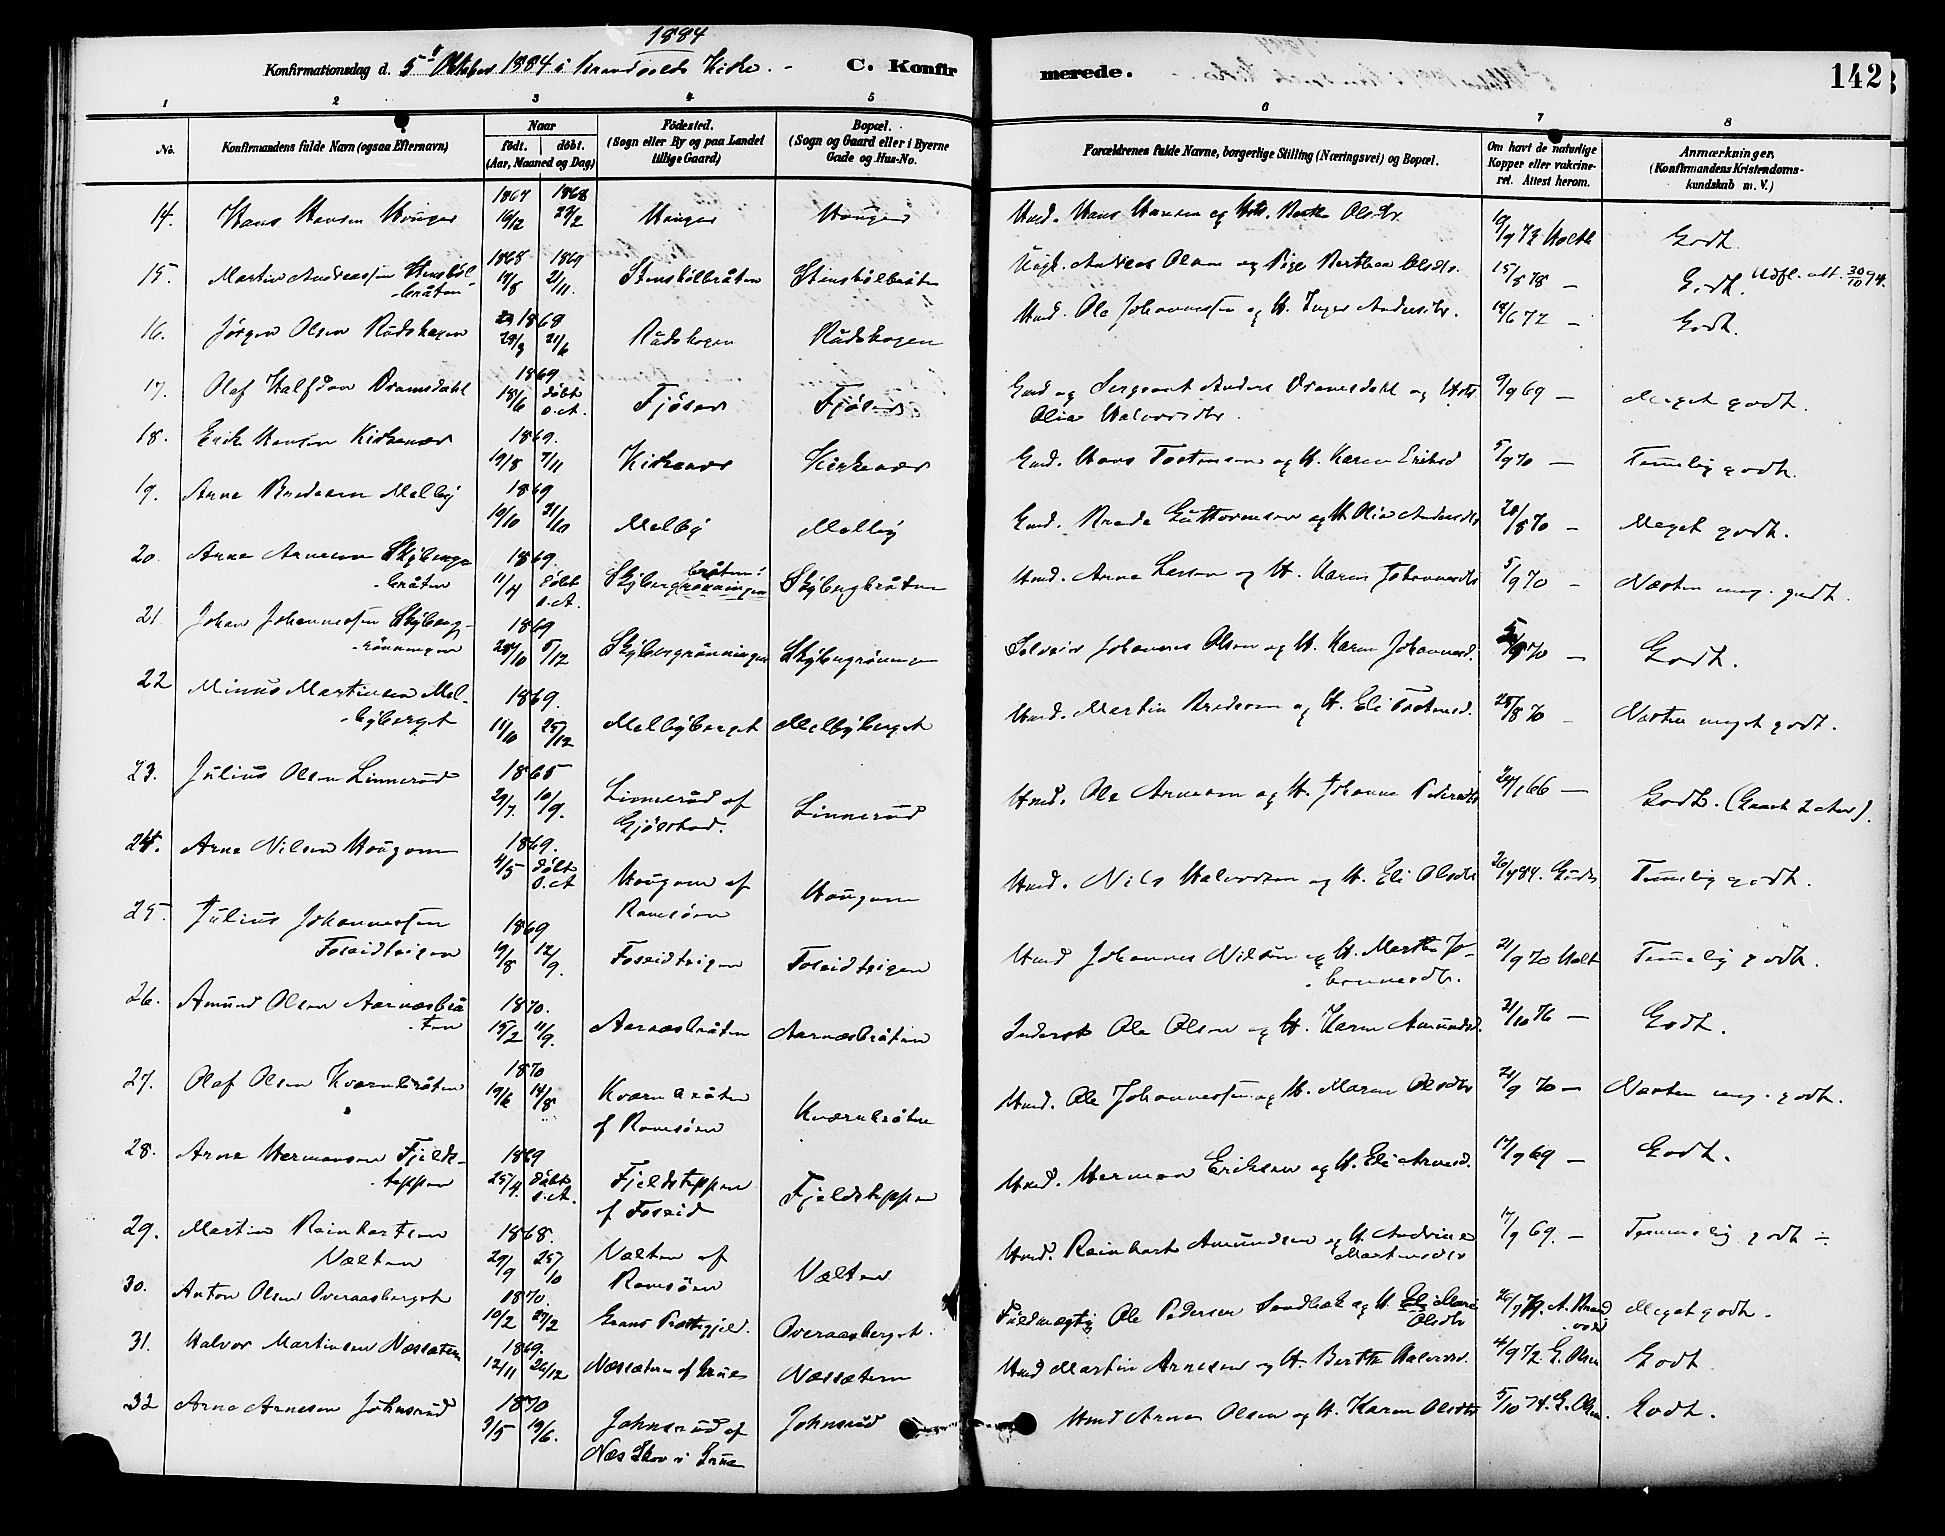 1884
Konfirmationsdag d. 5' Oktober 1884 i Brandvolds Kirke. - C. Konfirmerede. 142
1 2 3 4 5 6 7 8
No. Konfirmandens fulde Navn (ogsaa Efternavn) Naar födt. döbt. (Aar, Maaned og Dag) Födested. (Sogn eller By og paa Landet tillige Gaard) Bopæl. (Sogn og Gaard eller i Byerne Gade og Hus-No. Forældrenes fulde Navne, borgerlige Stilling (Næringsvei) og Bopæl. Om havt de naturlige Kopper eller vakcineret. Attest herom. Anmærkninger. (Konfirmandens Kristendomskundskab m. V.)
14. Hans Hansen Houger 1867 16/2 1868 29/2 Houger Houger Hmd. Hans Hansen og Olsdtr. Godt.
15. Martin Andreassen Stensbølbråten 1868 18/8 1869 21/11 Stensbølbråten Stensbølbråten Ungk. Andreas Olsen og Pige Berthea Olsdtr. 15/8 78 - Godt. Udfl. att. 30/10 94.
16. Jörgen Olsen Rudshagen 1868 29/3 21/6 Rudshagen Rudshagen Hmd. Ole Johannessen og H. Inger Andersdtr. 18/6 72 - Godt.
17. Olaf Halfdan Dramsdahl 1869 18/6 döbt s.A. Fjöser Fjöser Gmd og Sergeant Anders Dramsdahl og Hstr Olia Halvorsdtr. 9/9 69 - Meget godt.
18. Erik Hansen Kirkenær 1869. 19/8 7/11 Kirkenær Kirkenær Gmd. Hans Tostensen og H. Karen Eriksd 5/9 70 - Temelig godt.
19. Arne Bredesen Melby 1869 19/10 31/10 Melby Melby Gmd. Brede Guttormsen og H. Olia Andersdtr 20/8 70 - Meget godt.
20. Arne Arnesen Skybergbråten 1869. 11/4 döbt s.A. Skybergrönningen bråten! Skybergbråten Hmd. Arne Larsen og H. Karen Johannesdtr 5/9 70 - Næsten meg. godt.
21. Johan Johannessen Skybergrönningen 1869 28/10 5/12 Skybergrönningen Skybergrönningen Selveier Johannes Olsen og H. Karen Johannesd. 70 - Godt.
22 Minus Martinsen Melbyberget 1869. 11/10 25/12 Melbyberget Melbyberget Hmd. Martin Bredesen og H. Eli Tostensd. 25/8 70 - Næsten meget godt.
23. Julius Olsen Linnerud 1865 29/7. 10/9. Linnerud af Gjölstad. Linnerud Hmd. Ole Arnesen og H. Johanne Pedersdtr 24/1 66 - Godt. (Gaaet 2 Aar).
24. Arne Nilsen Hougom 1869. 4/5 döbt s.A Hougom af Romsöen Hougom Hmd. Nils Halvorsen og H. Eli Olsdtr 26/4 84. Temelig godt.
25. Julius Johannessen Foseideigen 1869 19/8 12/9. Foseideigen Foseideigen Hmd Johannes Nilsen og H. Marthe Johannesdtr. 21/9 70 Holt Temelig godt.
26. Amund Olsen Aarnæsbråten 1870. 15/2 11/9. Aarnæsbråten Aarnæsbråten Inderst Ole Olsen og H. Karen Amundsd. 21/10 76 - Godt.
27. Olaf Olsen Kværnbråten 1870 19/6 14/8 Kværnbråten af Romsöen Kværnbråten Hmd. Ole Johannessen og H. Maren Olsdtr 21/9 70 - Næsten meg. godt.
28. Arne Hermansen Fjeldsteppen 1869 25/4. döbt s.A. Fjeldsteppen af Foseid Fjeldsteppen Hmd. Herman Eriksen og H. Eli Arnesd. 17/9 69 - Godt.
29. Martin Reinhartsen Vælten 1868. 29/9 25/10 Vælten af Romsöen Vælten Hmd. Reinhart Amundsen og H. Andrine Martinsdtr 17/9 69. - Temmelig godt ÷
30. Anton Olsen Overaasberget 1870. 10/2 27/2 Grues Præstegjeld. Overaasberget. Fuldmægtig Ole Pedersen Sandbæk og H. Eli Marie Olsdtr Meget godt.
31. Halvor Martinsen Næssætern 1869. 12/11 26/12 Næssætern af Grue Næssætern Hmd Martin Arnesen og H. Berthe Halvorsd. 4/9 72 G. Olsen Godt.
32 Arne Arnesen Johnsrud 1870 9/5 19/6. Johnsrud af Næs Skov i Grue Johnsrud Hmd Arne Olsen og H. Karen Olsdtr 5/10 71. G. Olsen. Godt.